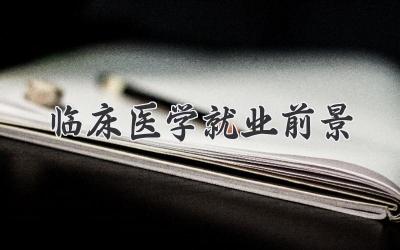 临床医学就业前景